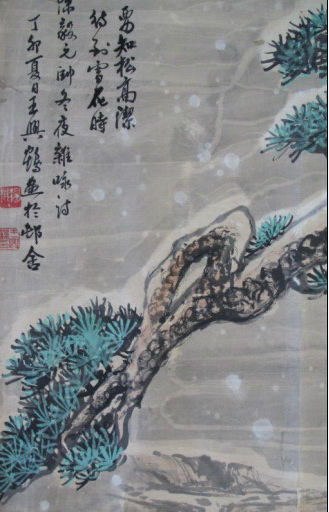 要知松高潔
待到雪花時
陳毅元帥冬夜雜咏詩
丁卯夏日王興鶴畫於邨舍